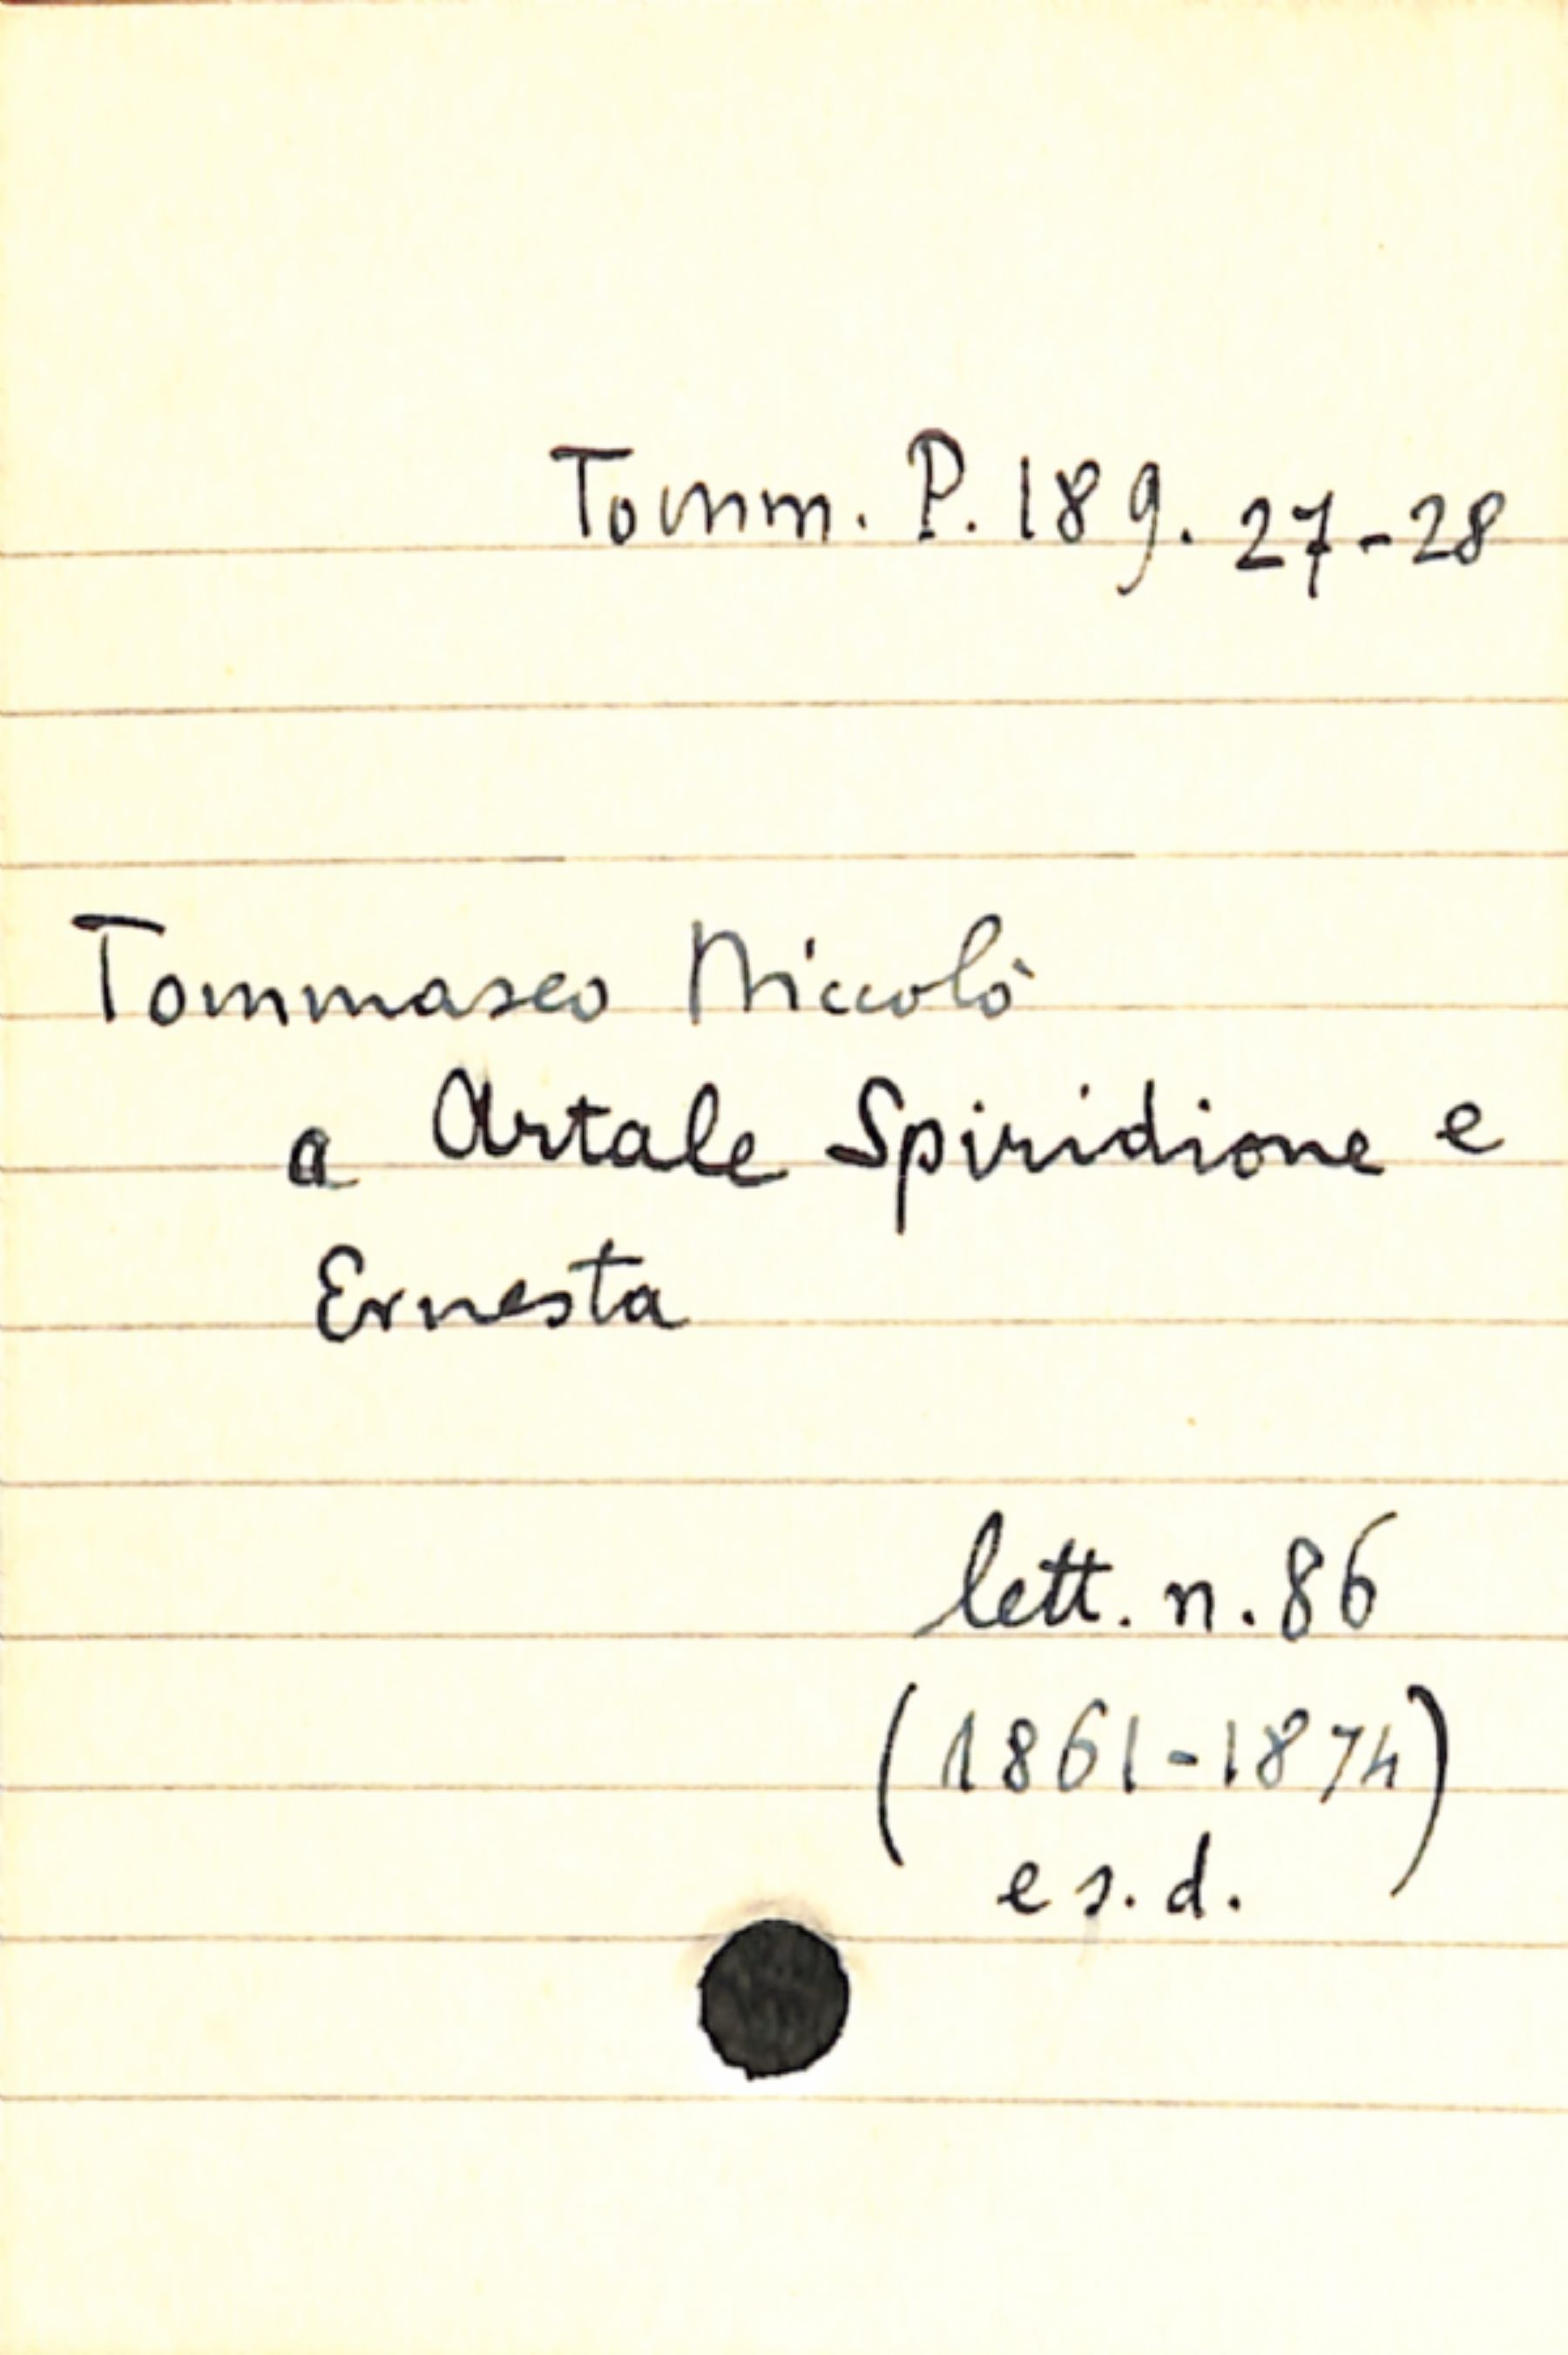 Tomm. P. 189. 27-28
Tommaseo Niccolò
a Artale Spiridione e
Ernesta
lett. n. 86
(1861-1874)
e s. d.